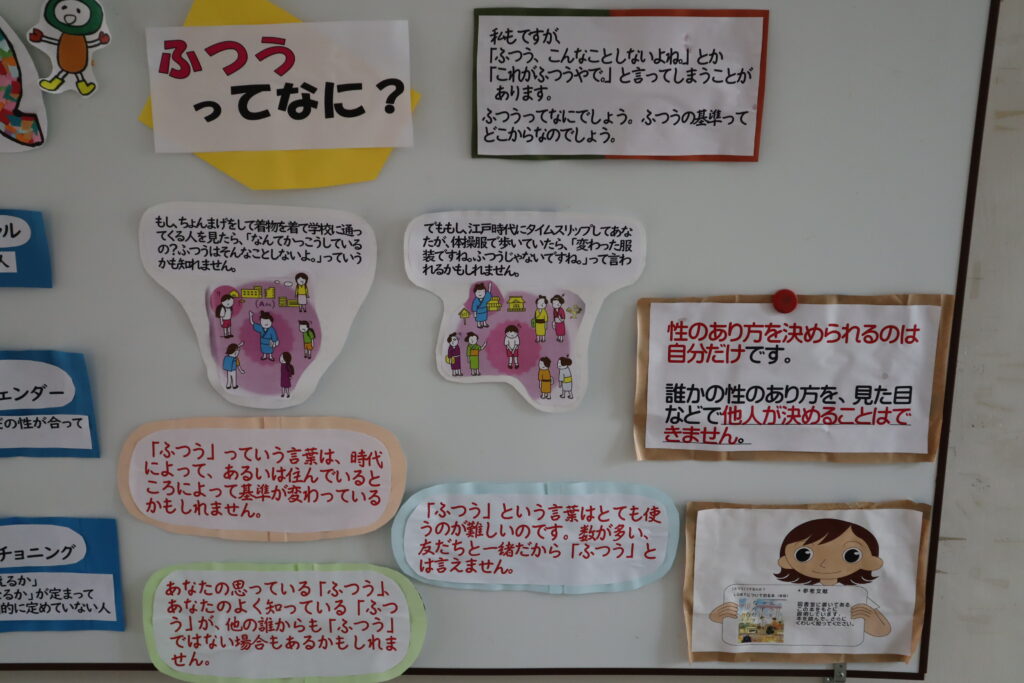 ふつう
ってなに？
私もですが、
「ふつう、こんなことしないよね。」とか
「これがふつうやで。」と言ってしまうことが
あります。
ふつうってなにでしょう。ふつうの基準って
どこからなのでしょう。
もし、ちょんまげをして着物を着て学校に通っ
てくる人を見たら、「なんてかっこうしている
の？、ふつうはそんなことしないよ。」っていう
かも知れません。
でももし、江戸時代にタイムスリップしてあな
たが、体操服で歩いていたら、「変わった服
装ですね。ふつうじゃないですね。」って言わ
れるかもしれません。
性のあり方を決められるのは
自分だけです。
誰かの性のあり方を、見た目
などで他人が決めることはで
きません。
「ふつう」っていう言葉は、時代
によって、あるいは住んでいると
ころによって基準が変わっている
かもしれません。
「ふつう」という言葉はとても使
うのが難しいのです。数が多い、
友だちと一緒だから「ふつう」と
は言えません。
あなたの思っている「ふつう」、
あなたのよく知っている「ふつ
う」が、他の誰からも「ふつう」
ではない場合もあるかもしれま
せん。
ル
人
ェンダー
の性が合って
チョニング
えるか」
なるか」が定まって
的に定めていない人
・参考文献
図書室に置いてある
この本をもとに
説明しています。
くわしく知ってください。